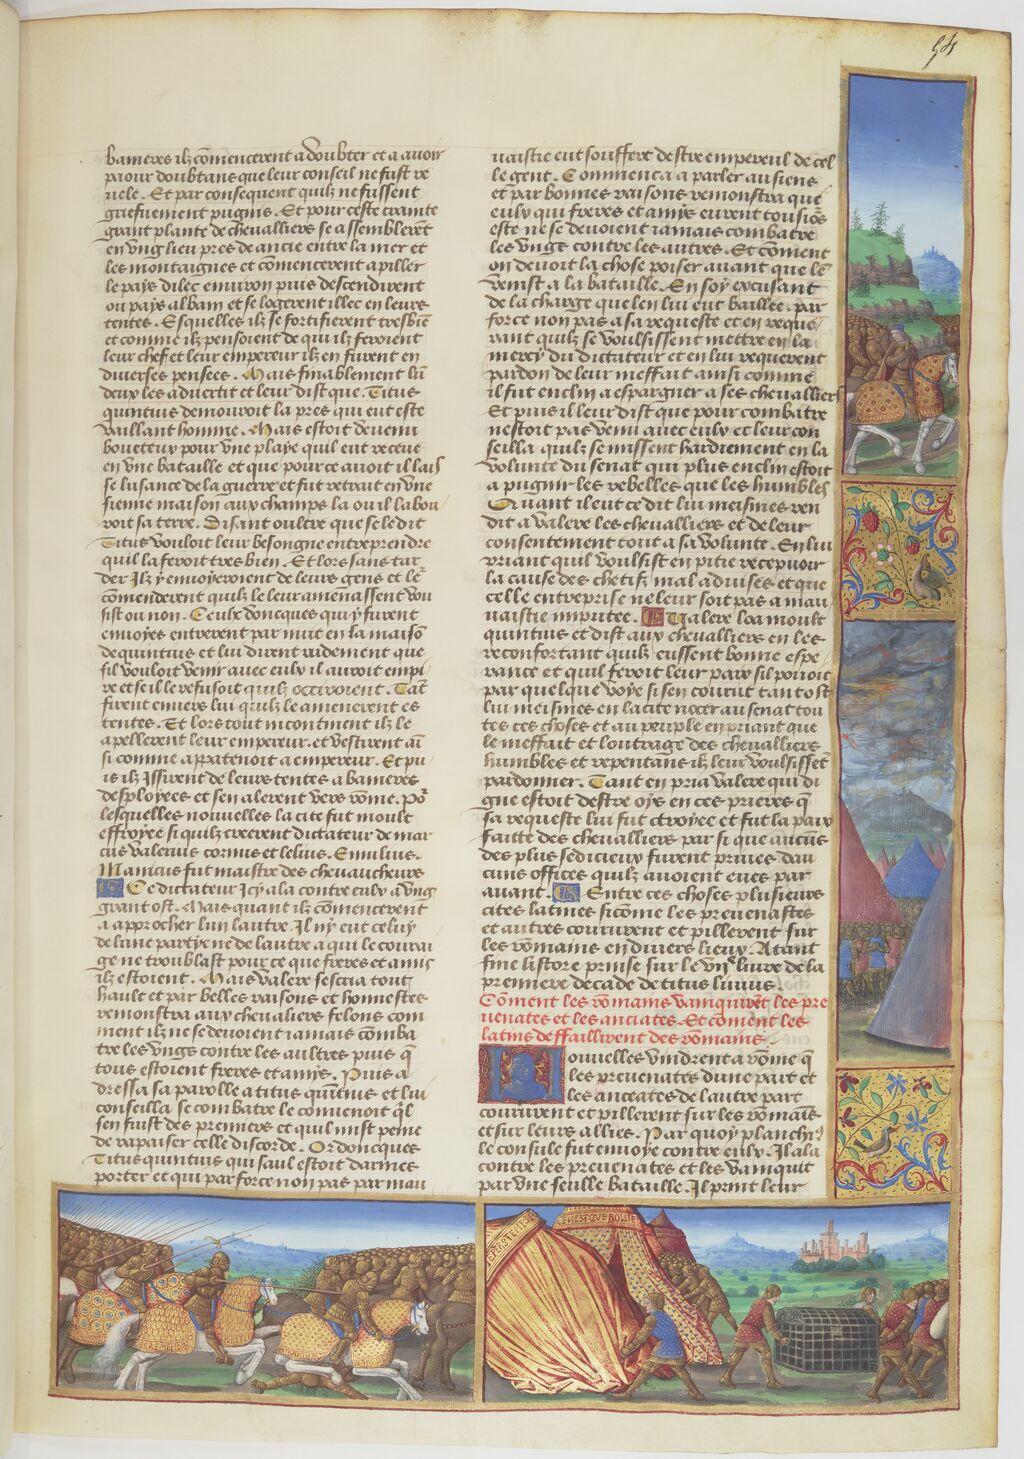 54
banieres ilz cōmencerent a doubter et a avoir
paour doubtans que leur conseil ne fust re
vele. Et par consequent quilz ne fussent
griefuement pugnis. Et pour ceste crainte
grant plante de chevalliers se assemblerēt
en ung lieu pres de ancie entre la mer et
les montaignes et cōmencerent a piller
le pays dilec environ puis descendirent
ou pays albain et se logerent illec en leurs
tentes. Esquelles ilz se fortifierent tresbiē
et comme ilz pensoient de qui ilz feroient
leur chef et leur empereur ilz en furent en
diverses pensees. Mais finablement lū
deulx les advertit et leur dist que. Titus
quintius demouroit la pres qui eut este
vaillant homme. Mais estoit devenu
boueteux pour une playe quil eut receue
en une bataille et que pour ce avoit il lais
se lusance de la guerre et fut retrait en une
sienne maison aux champs la ou il labou
roit sa terre. Disant oultre que se ledit
Titus vouloit leur besongne entreprendre
quil la feroit tres bien. Et lors sans tar
der Ilz y envoyeroient de leurs gens et le
cōmenderent quilz le leur amenassent vou
sist ou non. Ceulx doncques qui y furent
envoyes entrerent par nuit en la maisō
de quintius et lui dirent ruidement que
sil vouloit venir avec eulx il auroit empi
re et se il le refusoit quilz occiroient. Tāt
firent envers lui quilz le amenerent es
tentes. Et lors tout incontinent ilz le
apellerent leur empereur. et vestirent aī
si comme appatenoit a empereur. Et pu
is ilz Issirent de leurs tentes a banieres
desployees et sen alerent vers rōme. Po
lesquelles nouvelles la cite fut moult
effroyee si quilz creerent dictateur de mar
cus valerius corvius et lelius. Emilius.
Manicus fut maistre des chevaucheurs
Ce dictateur Icy ala contre eulx a ung
grant ost. Mais quant ilz cōmencerent
a approcher lun lautre. Il ny eut celuy
de lune partye ne de lautre a qui le courai
ge ne troublast pour ce que freres et amis
ilz estoient. Mais valere sescria tout
hault et par belles raisons et honnestes
remonstra aux chevaliers felons com
ment ilz ne se devoient iamais cōmba
tre les ungs contre les aultres puis q̄
tous estoient freres et amys. Puis a
dressa sa parolle a titus quītius et lui
conseilla se combatre le convenoit q̄l
sen fuist des premiers et quil mist peine
de rapaiser celle discorde. Or doncques
Titus quintius qui saul estoit darmes
porter et qui par force non pas par mau
vaistie eut souffert destre empereul de cel
le gent. Commenca a parler au siens
et par bonnes raisons remonstra que
eulx qui freres et amys eurent tousio's
este ne se devoient iamais combatre
les ungs contre les autres. Et cōment
on devoit la chose poiser avant que lē
venist a la bataille. En soy excusant
de la charge que len lui eut baillee. par
force non pas a sa requeste et en reque
rant quilz se voulsissent mettre en la
mercy du dictateur et en lui requerent
pardon de leur meffait ainsi comme
il fut enclin a espargner a ses chevalliers
Et puis il leur dist que pour combatre
nestoit pas venu avec eulx et leur con
seilla quilz se missent hardiement en la
volunte du senat qui plus enclin estoit
a pugnir les rebelles que les humbles
Quant il eut ce dit lui mesmes ren
dit a valere les chevalliers et de leur
consentement tout a sa volunte. En lui
priant quil voulsist en pitie recepvoir
la cause des chetifz mal advises et que
celle entreprise ne leur soit pas a mau
vaistie imputee. Valere loa moult
quintius et dist aux chevalliers en les
reconfortant quilz eussent bonne espe
rance et quil feroit leur paix sil povoit
par quelque voye si sen courut tantost
lui mesmes en la cite nocer au senat tou
tes ces choses et au peuple en priant que
le meffait et loutrage des chevalliers
humbles et repentans ilz leur voulsissēt
pardonner. Tant en pria valere qui di
gne estoit destre oys en ces prieres q̄
sa requeste lui fut otroyee et fut la paix
faitte des chevalliers par si que aucuns
des plus sedicieux furent prives dau
cuns offices quilz avoient eues par
avant. Entre ces choses plusieurs
cites latines sicōme les prevenastes
et autres coururent et pillerent sur
les rōmains en divers lieux. Atant
fine listore prinse sur le vii.e livre de la
premiere decade de titus livius.
Cōment les rōmains vainquirēt les pre
venates et les anciates. Et cōment les
latins deffaillirent des rōmains.
Nouvelles vindrent a rōme q̄
les prevenates dune part et
les anceates de lautre part
coururent et pillerent sur les rōmaīs
et sur leurs allies. Par quoy planch[us]
le consule fut envoye contre eulx. Il ala
contre les prevenates et les vainquit
par une seulle bataille. Il print leur